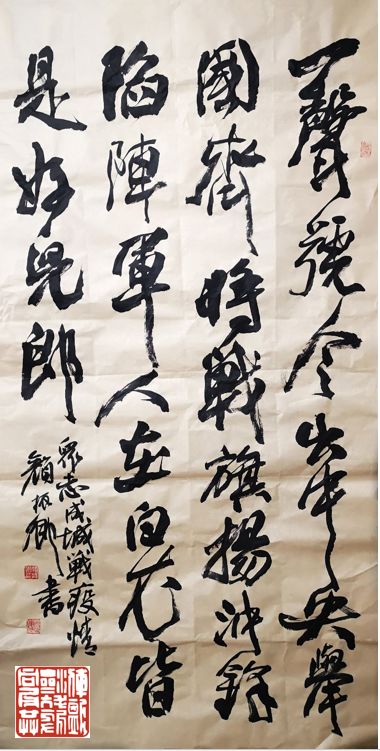 一聲號令出中央舉
國齊時戰旗揚沖鋒
陷陣軍人在白衣皆
是好兒郎
眾志成城戰疫情
書